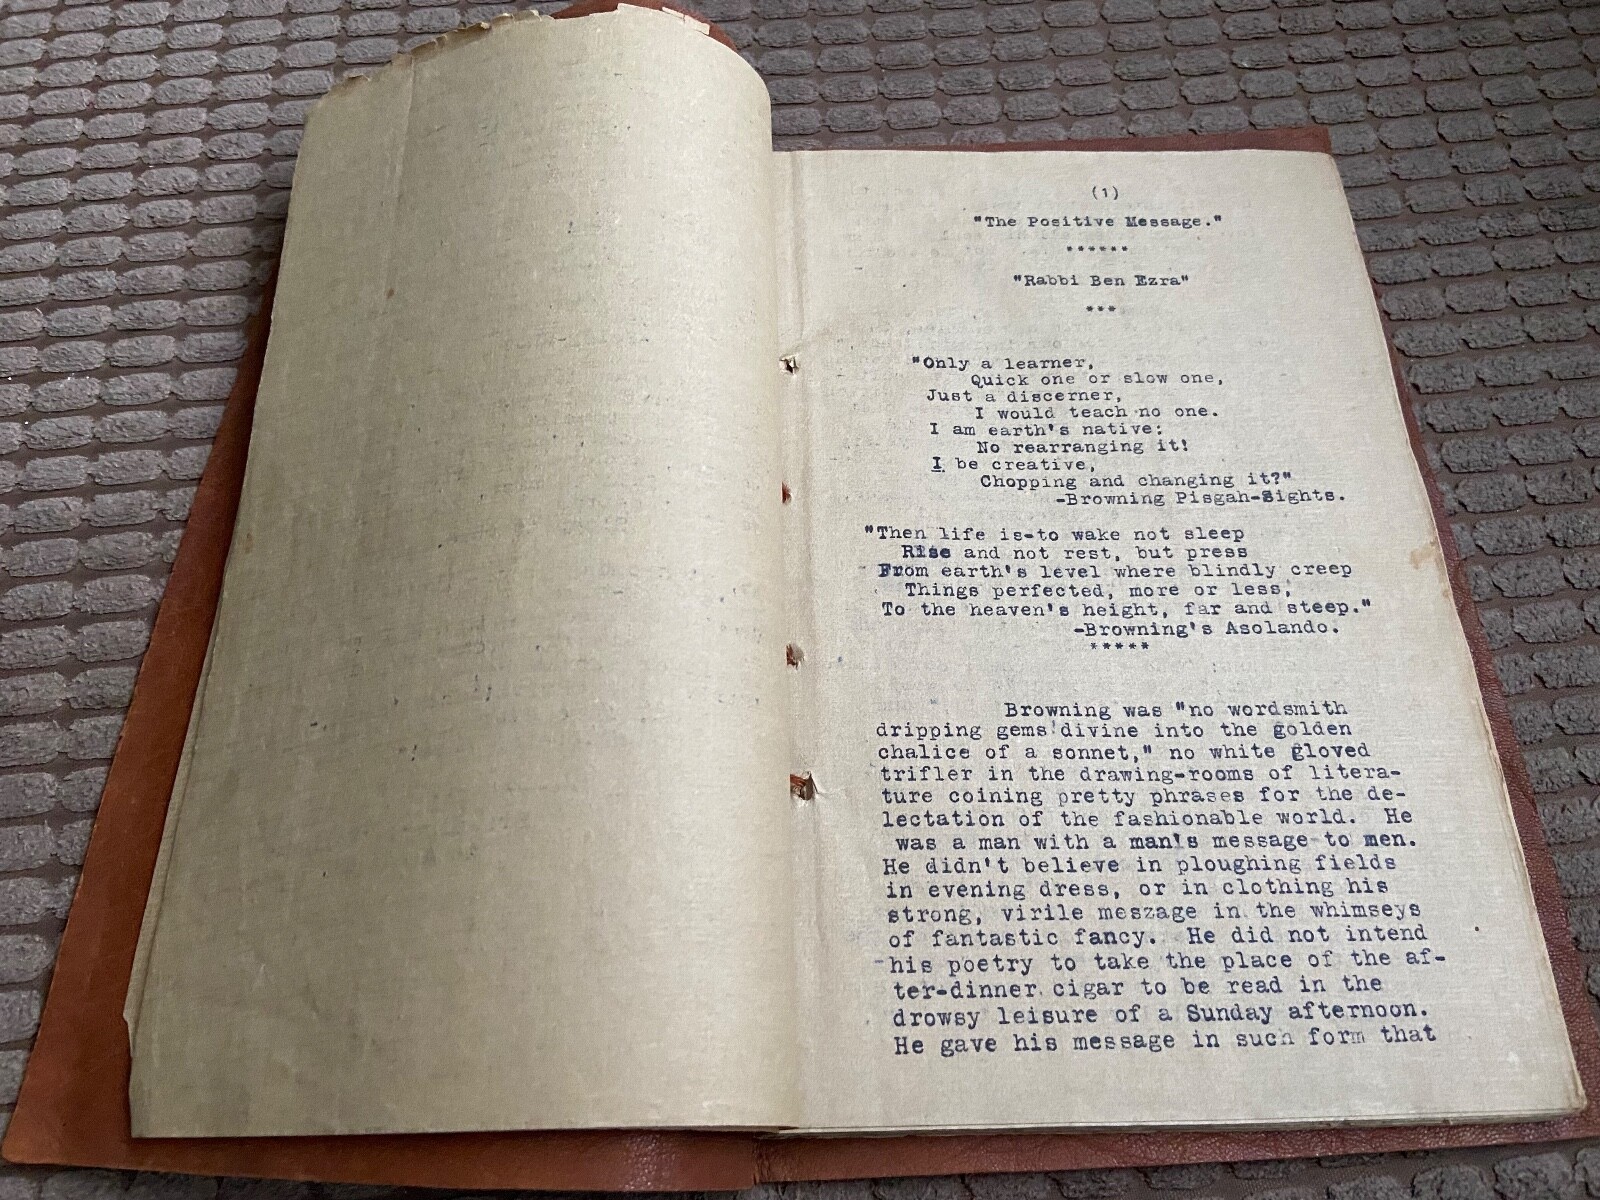 (1)
"The Positive Message."
******
"Rabbi Ben Ezra"
***
"Only a learner,
Quick one or slow one,
Just a discerner,
I would teach no one.
I am earth's native:
No rearranging it!
I be creative,
Chopping and changing it?"
-Browning Pisgah-Sights.
"Then life is-to wake not sleep
Rise and not rest, but press
From earth's level where blindly creep
Things perfected, more or less,
To the heaven's height, far and steep."
-Browning's Asolando.
*****
Browning was "no wordsmith
dripping gems divine into the golden
chalice of a sonnet," no white gloved
trifler in the drawing-rooms of litera-
ture coining pretty phrases for the de-
lectation of the fashionable world. He
was a man with a man's message to men.
He didn't believe in ploughing fields
in evening dress, or in clothing his
strong, virile meszage in the whimseys
of fantastic fancy. He did not intend
his poetry to take the place of the af-
ter-dinner cigar to be read in the
drowsy leisure of a Sunday afternoon.
He gave his message in such form that